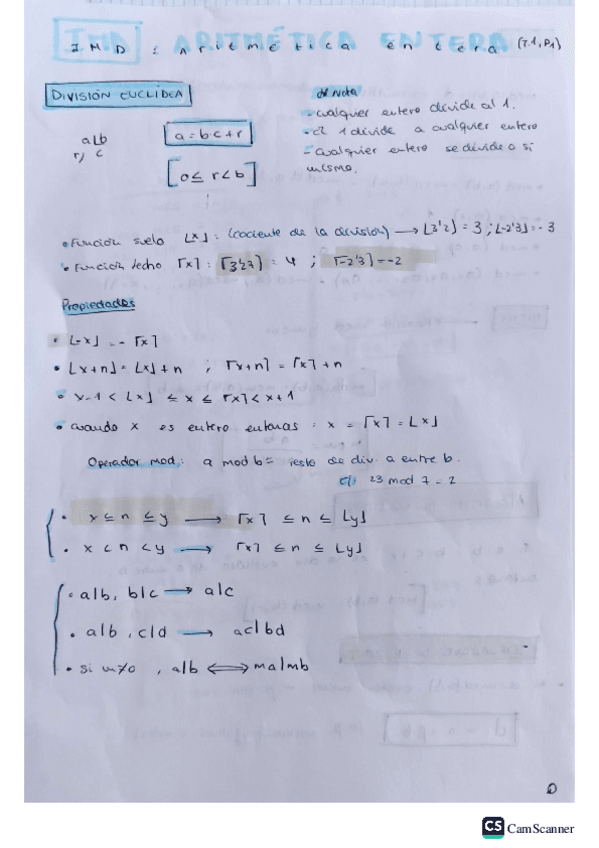 IMD : Aritmética entera (T.1, P1)
DIVISIÓN EUCLÍDEA
a = bc + r
[0 ≤ r < b]
a⌊b
r/ c
- cualquier entero divide al 1.
- el 1 divide a cualquier entero
- cualquier entero se divide a sí
mismo.
• Función suelo ⌊x⌋ : (cociente de la división) → ⌊3'2⌋ = 3 ; ⌊-2'3⌋ = -3
• Función techo ⌈x⌉ : ⌈3'27⌉ = 4 ; ⌈-2'3⌉ = -2
Propiedades
• ⌊-x⌋ = - ⌈x⌉
• ⌊x+n⌋ = ⌊x⌋ + n ; ⌈x+n⌉ = ⌈x⌉ + n
• x-1 < ⌊x⌋ ≤ x ≤ ⌈x⌉ < x+1
• cuando x es entero entonces : x = ⌈x⌉ = ⌊x⌋
Operador mod : a mod b = resto de div. a entre b.
Ej: 23 mod 7 = 2
• x ≤ n ≤ y → ⌈x⌉ ≤ n ≤ ⌊y⌋
• x < n < y → ⌈x⌉ ≤ n ≤ ⌊y⌋
• a|b, b|c → a|c
• a|b, c|d → ac|bd
• si m≠0, a|b ⟺ ma|mb
CS CamScanner